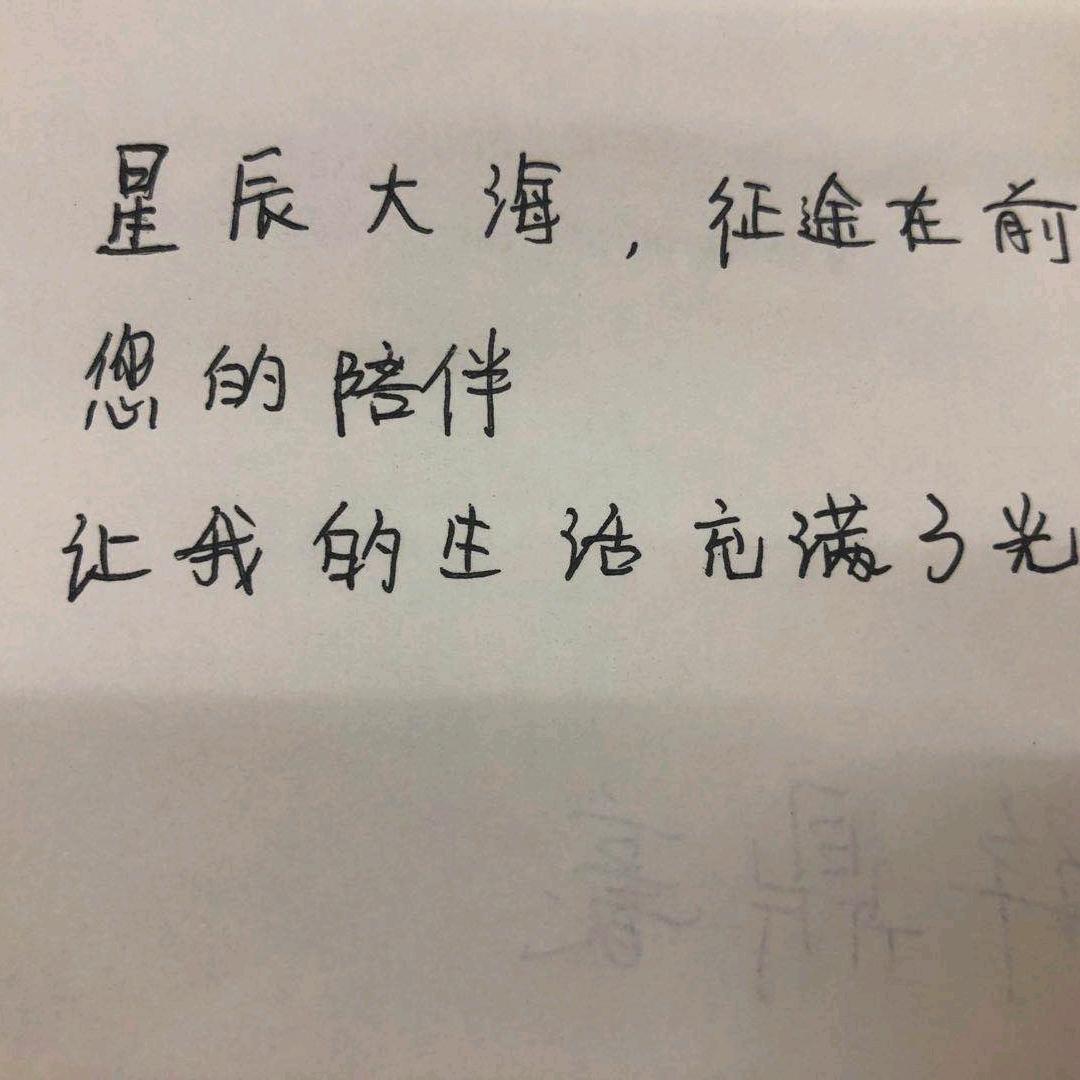 星辰大海，征途在前
您的陪伴
让我的生活充满了光